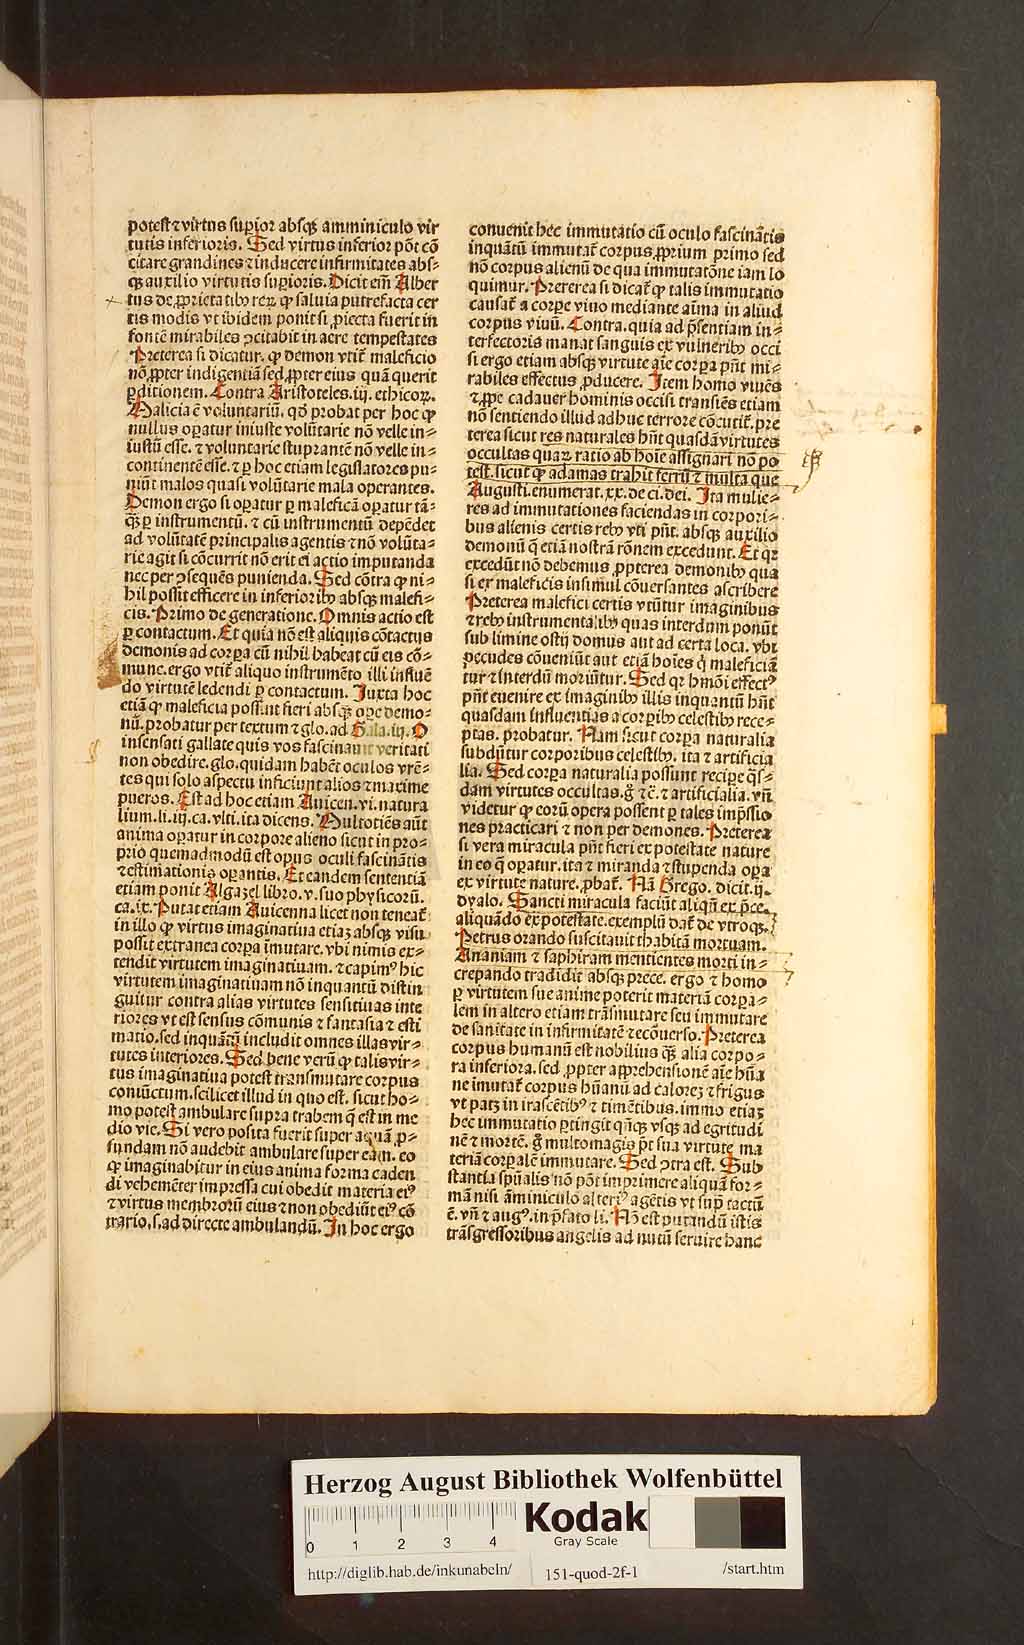 potest ⁊ virtus suꝑior absqꝫ amminiculo vir
tutis inferioris. Sed virtus inferior põt cõ
citare grandines ⁊ inducere infirmitates abs⸗
qꝫ auxilio virtutis suꝑioris. Dicit em̃ Alber
tus de ꝓprietatibꝰ reꝝ ꝙ saluia putrefacta cer
tis modis vt ibidem ponit si ꝓiecta fuerit in
fontẽ mirabiles ꝯcitabit in aere tempestates
Preterea si dicatur. ꝙ demon vtit᷑ maleficio
nõ ꝓpter indigentiã sed ꝓpter eius quã querit
ꝑditionem. Contra Aristoteles. iij. ethicoꝝ.
Malicia ẽ voluntariũ. qd̃ probat per hoc ꝙ
nullus oꝑatur iniuste volũtarie nõ velle in⸗
iustũ esse. ⁊ voluntarie stuprantẽ nõ velle in⸗
continentẽ esse. ⁊ ꝑ hoc etiam legislatores pu⸗
niũt malos quasi volũtarie mala operantes.
Demon ergo si oꝑatur ꝑ maleficã oꝑatur tã⸗
qꝫ̃ ꝑ instrumentũ. ⁊ cũ instrumentũ depẽdet
ad volũtatẽ principalis agentis ⁊ nõ volũta⸗
rie agit si cõcurrit nõ erit ei actio imputanda
nec per ꝯsequẽs punienda. Sed cõtra ꝙ ni⸗
hil possit efficere in inferioribꝰ absqꝫ malefi⸗
cis. Primo de generatione. Omnis actio est
ꝑ contactum. Et quia nõ est aliquis cõtactus
demonis ad corꝑa cũ nihil habeat cũ eis cõ⸗
mune. ergo vtit᷑ aliquo instrumẽto illi influẽ
do virtutẽ ledendi ꝑ contactum. Juxta hoc
etiã ꝙ maleficia possint fieri absqꝫ ope demo⸗
nũ. probatur per textum ⁊ glo. ad Gala. iij. O
insensati gallate quis vos fascinauit veritati
non obedire. glo. quidam habẽt oculos vrẽ⸗
tes qui solo aspectu inficiunt alios ⁊ maxime
pueros. Est ad hoc etiam Auicen. vi. natura
lium. li. iij. ca. vlti. ita dicens. Multotiẽs aũt
anima oꝑatur in corpore alieno sicut in pro⸗
prio quemadmodũ est opus oculi fascinãtis
⁊ estimationis oꝑantis. Et eandem sententiã
etiam ponit Algazel libro. v. suo physicorũ.
ca. ix. Putat etiam Auicenna licet non teneat᷑
in illo ꝙ virtus imaginatiua etiaꝫ absqꝫ visu
possit extranea corꝑa ĩmutare. vbi nimis ex⸗
tendit virtutem imaginatiuam. ⁊ capimꝰ hic
virtutem imaginatiuam nõ inquantũ distin
guitur contra alias virtutes sensitiuas inte
riores vt est sensus cõmunis ⁊ fantasia ⁊ esti
matio. sed inquãtũ includit omnes illas vir⸗
tutes interiores. Sed bene verũ ꝙ talis vir⸗
tus imaginatiua potest transmutare corpus
coniũctum. scilicet illud in quo est. sicut ho⸗
mo potest ambulare supra trabem q̃ est in me
dio vie. Si vero posita fuerit super aquã ꝓ⸗
fundam nõ audebit ambulare super eam. eo
ꝙ imaginabitur in eius anima forma caden
di vehemẽter impressa cui obedit materia eiꝰ
⁊ virtus membrorũ eius ⁊ non obediũt eiꝰ cõ
trario. s. ad directe ambulandũ. In hoc ergo
conuenit hec immutatio cũ oculo fascinãtis
inquãtũ immutat᷑ corpus ꝓprium primo sed
nõ corpus alienũ de qua immutatõne iam lo
quimur. Preterea si dicat᷑ ꝙ talis immutatio
causat᷑ a corꝑe viuo mediante aĩma in aliud
corpus viuũ. Contra. quia ad p̃sentiam in⸗
terfectoris manat sanguis ex vulneribꝰ occi
si ergo etiam absqꝫ virtute aĩe corꝑa pñt mi⸗
rabiles effectus ꝓducere. Item homo viuẽs
⁊ ꝓpe cadauer hominis occisi transiẽs etiam
nõ sentiendo illud adhuc terrore cõcutit᷑. pre
terea sicut res naturales hñt quasdã virtutes
occultas quaꝝ ratio ab hoĩe assignari nõ po
test. sicut ꝙ adamas trahit ferrũ ⁊ multa que
Augusti. enumerat. xx. de ci. dei. Ita mulie⸗
res ad immutationes faciendas in corpori⸗
bus alienis certis rebꝰ vti pñt. absqꝫ auxilio
demonũ q̃ etiã nostrã rõnem excedunt. Et qꝛ
excedũt nõ debemus ꝓpterea demonibꝰ qua
si ex maleficis insimul cõuersantes ascribere
Preterea malefici certis vtũtur imaginibus
⁊ rebꝰ instrumentalibꝰ quas interdum ponũt
sub limine ostij domus aut ad certa loca. vbi
pecudes cõueniũt aut etiã hoĩes q̃ maleficiã
tur ⁊ interdũ moriũtur. Sed qꝛ hmõi effectꝰ
pñt euenire ex imaginibꝰ illis inquantũ hñt
quasdam influentias a corꝑibꝰ celestibꝰ rece⸗
ptas. probatur. Nam sicut corꝑa naturalia
subdũtur corporibus celestibꝰ. ita ⁊ artificia
lia. Sed corꝑa naturalia possunt reciꝑe q̃s⸗
dam virtutes occultas. g̃ ⁊c̃. ⁊ artificialia. vñ
videtur ꝙ eorũ opera possent ꝑ tales imp̃ssio
nes practicari ⁊ non per demones. Preterea
si vera miracula pñt fieri ex potestate nature
in eo q̃ oꝑatur. ita ⁊ miranda ⁊ stupenda oꝑa
ex virtute nature. ꝓbat᷑. Nã Grego. dicit. ij.
dyalo. Sancti miracula faciũt aliqñ ex p̃ce.
aliquãdo ex potestate. exemplũ dat᷑ de vtroqꝫ.
Petrus orando suscitauit thabitã mortuam.
Ananiam ⁊ saphiram mentientes morti in⸗
crepando tradidit absqꝫ prece. ergo ⁊ homo
ꝑ virtutem sue anime poterit materiã corꝑa⸗
lem in altero etiam trãsmutare seu immutare
de sanitate in infirmitatẽ ⁊ ecõuerso. Preterea
corpus humanũ est nobilius qꝫ̃ alia corpo⸗
ra inferiora. sed ꝓpter apprehensionẽ aĩe hũa
ne imutat᷑ corpus hũanũ ad caloreꝫ ⁊ frigus
vt patꝫ in irascẽtibꝰ ⁊ timẽtibus. immo etiaꝫ
hec immutatio ꝑtingit qñqꝫ vsqꝫ ad egritudi
nẽ ⁊ mortẽ. g̃ multomagis p̃t sua virtute ma
teriã corꝑalẽ immutare. Sed ꝯtra est. Sub
stantia sp̃ualis nõ põt imprimere aliquã for⸗
mã nisi ãminiculo alteriꝰ agẽtis vt sup̃ tactũ
ẽ. vñ ⁊ augꝰ. in p̃fato li. Nõ est putandũ istis
trãsgressoribus angelis ad nutũ seruire hanc
Herzog August Bibliothek Wolfenbüttel
0 1 2 3 4
Kodak
Gray Scale
http://diglib.hab.de/inkunabeln/ 151-quod-2f-1 /start.htm